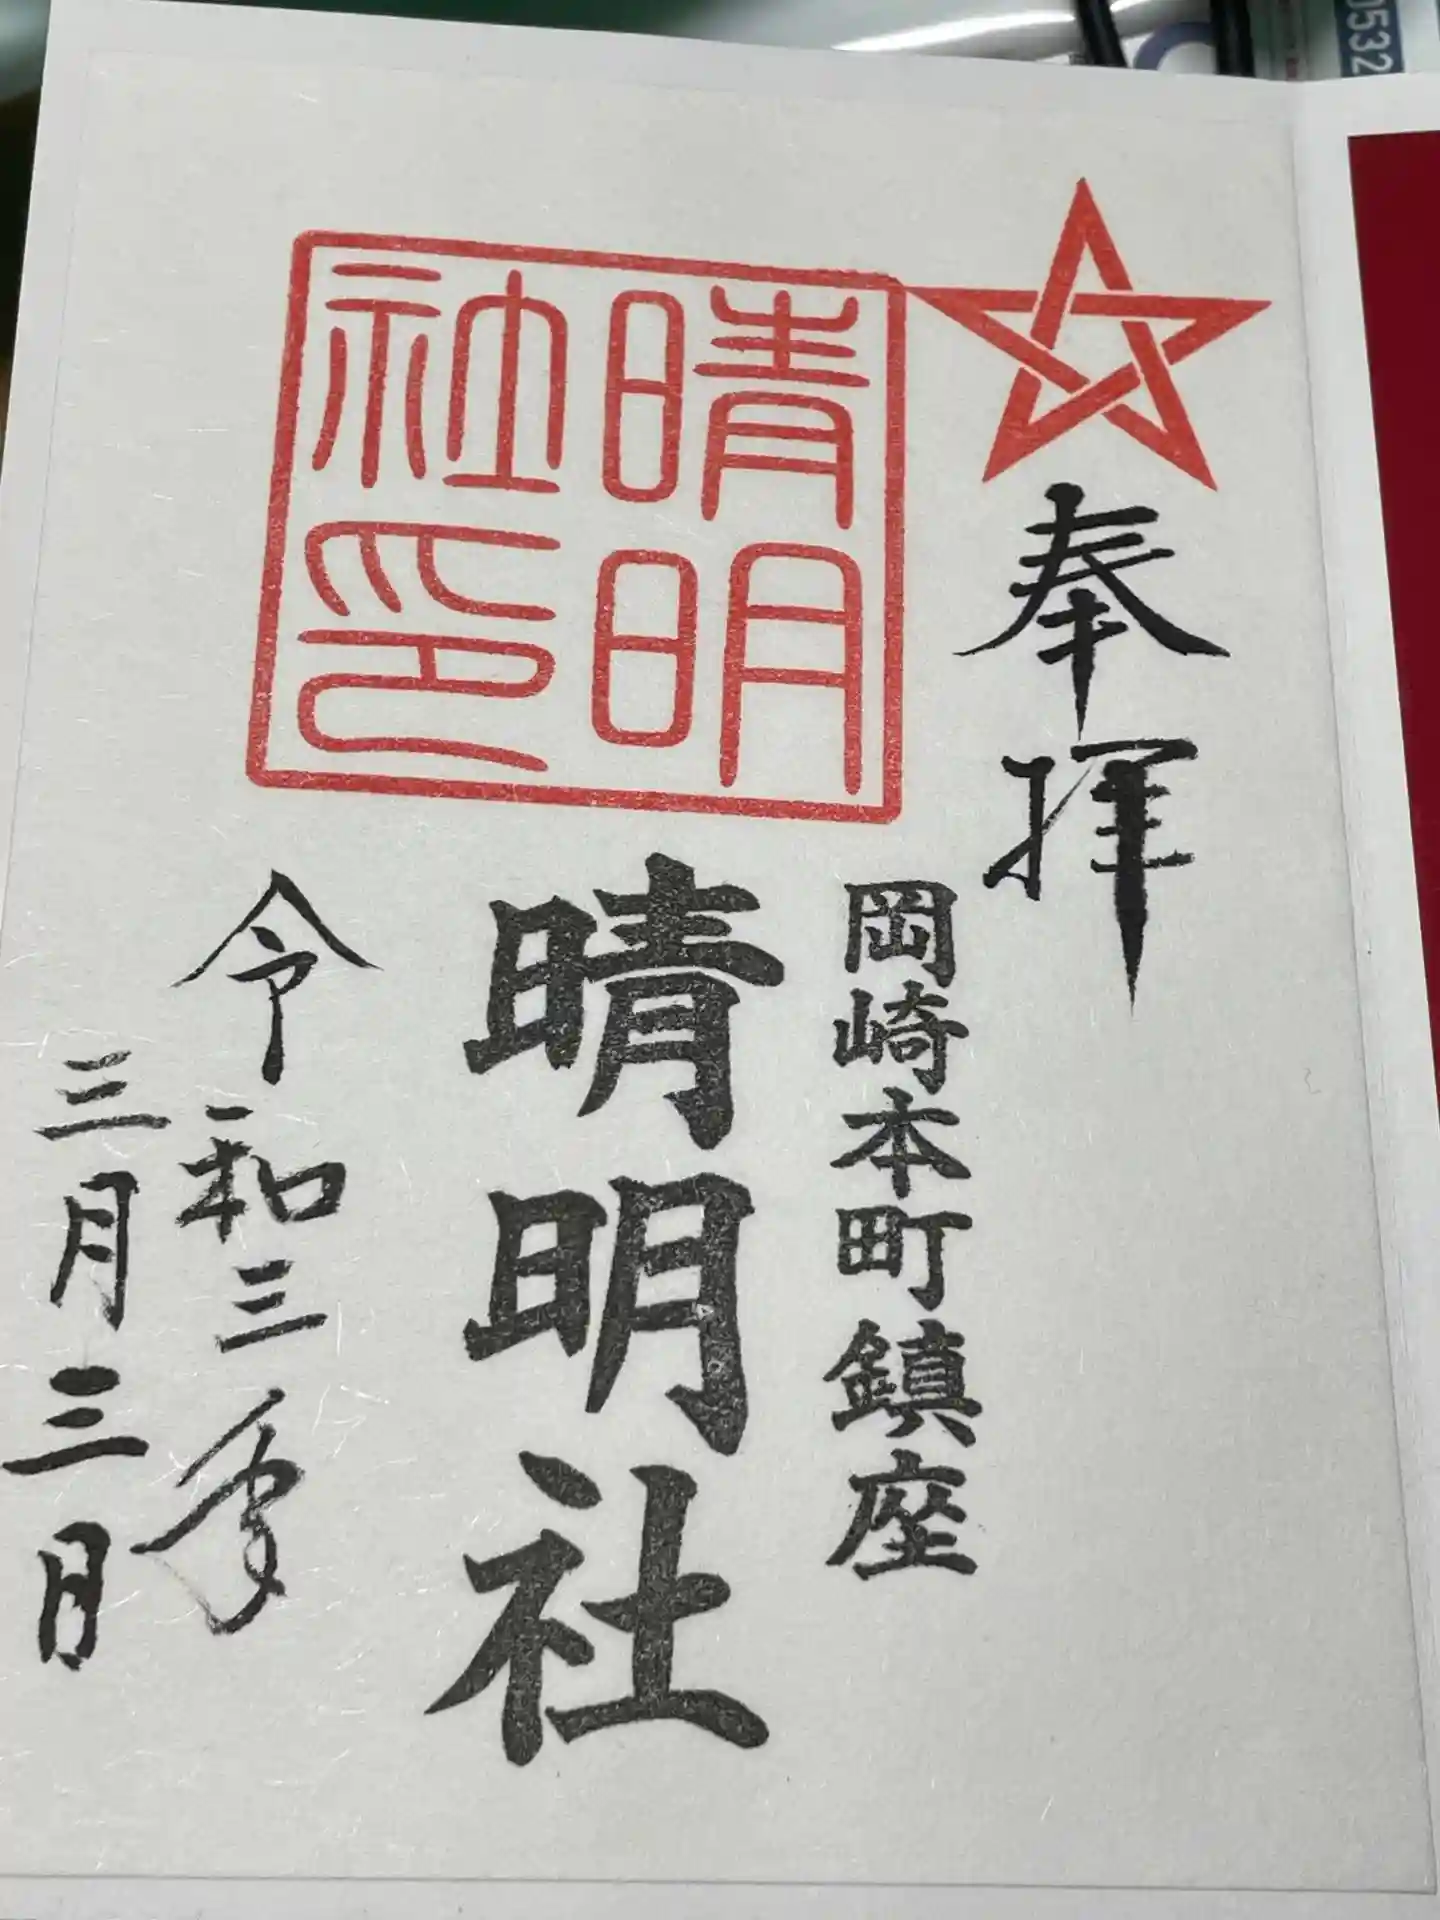 奉拝
岡崎本町鎮座
晴明社
晴明
社印
令和三年
三月三日
0532